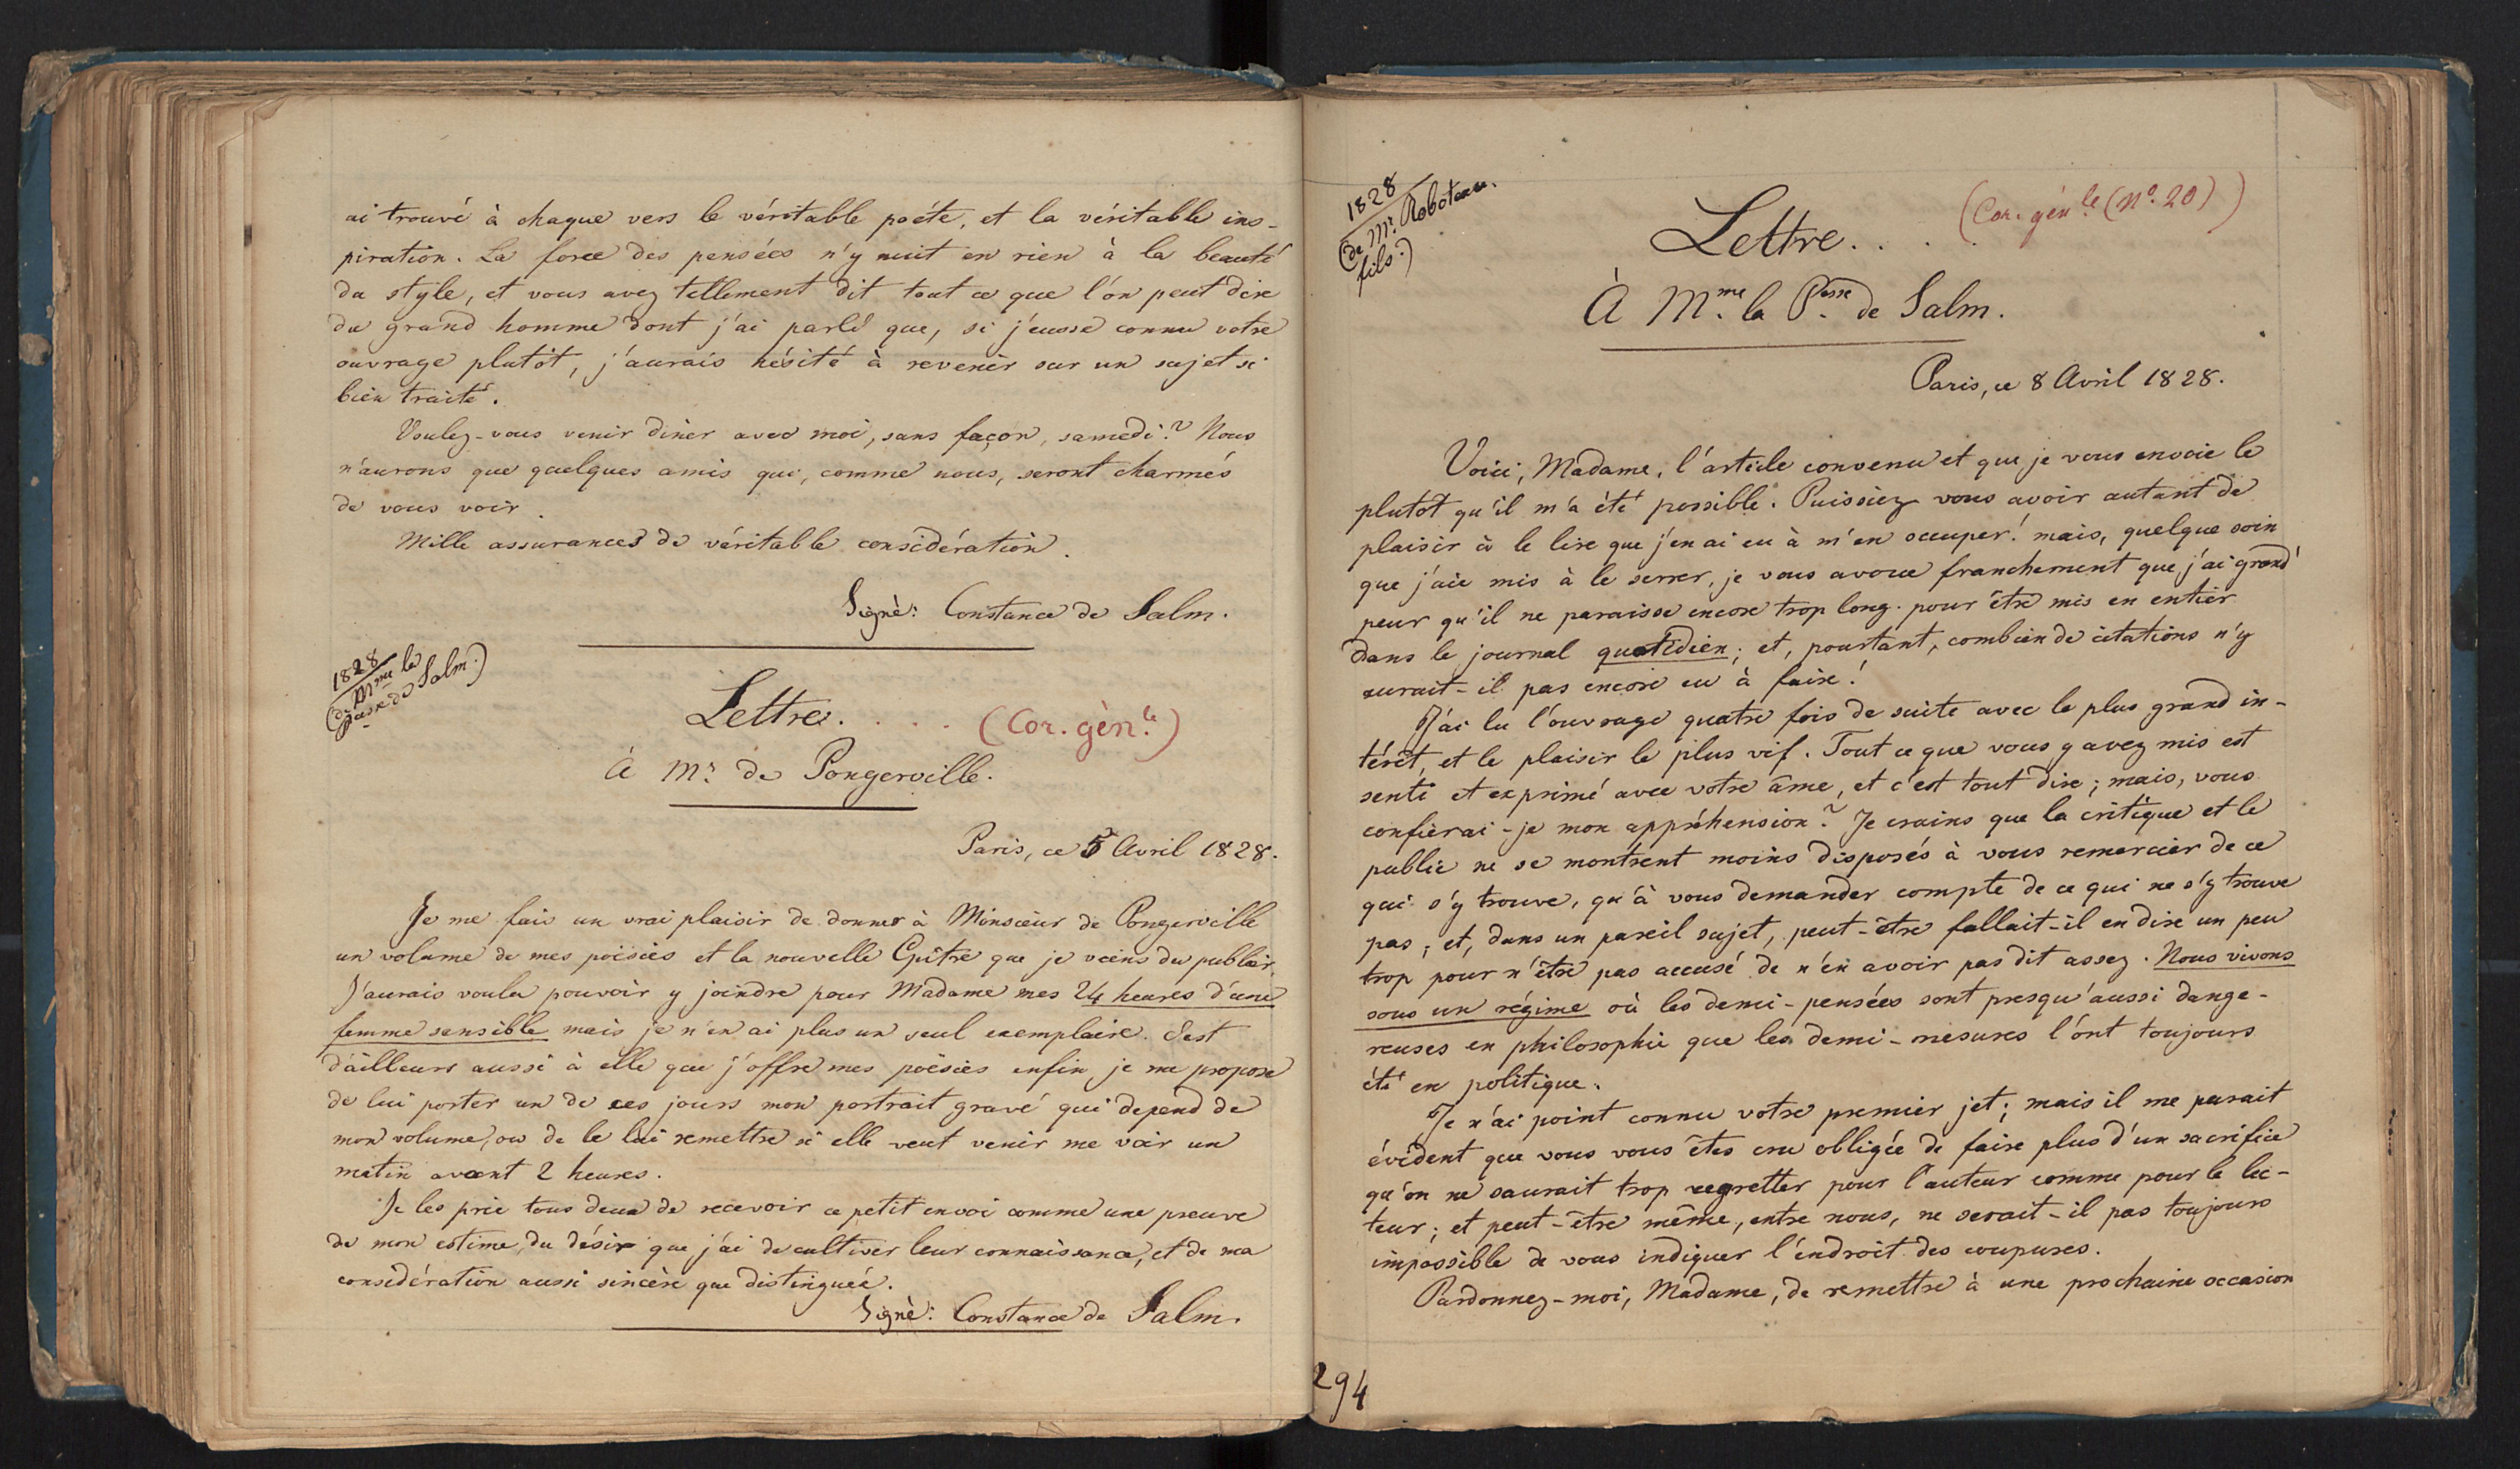 ai trouvé à chaque vers le véritable poéte, et la véritable ins-
piration. La force des pensées n'y nuit en rien à la beauté
du style, et vous avez tellement dit tout ce que l'on peut dire
du grand homme dont j'ai parlé que, si j'eusse connu votre
ouvrage plutôt, j'aurais hésité à revenir sur un sujet si
bien traité.
Voulez-vous venir diner avec moi, sans façon, samedi? Nous
n'aurons que quelques amis qui, comme nous, seront charmés
de vous voir.
Mille assurances de véritable considération.
Signé: Constance de Salm.
1828
(de Mme la
Pesse de Salm.)
Lettre. . . . (Cor. gén.le)
À Mr. de Pongerville.
Paris, ce 5 Avril 1828.
Je me fais un vrai plaisir de donner à Monsieur de Pongerville
un volume de mes poësies et la nouvelle Epître que je viens de publier.
J'aurais voulu pouvoir y joindre pour Madame mes 24 heures d'une
femme sensible mais je n'en ai plus un seul exemplaire. C'est
d'ailleurs aussi à elle que j'offre mes poësies enfin je me propose
de lui porter un de ces jours mon portrait gravé qui depend de
mon volume, ou de le lui remettre si elle veut venir me voir un
matin avant 2 heures.
Je les prie tous deux de recevoir ce petit envoi comme une preuve
de mon estime, du désir que j'ai de cultiver leur connaissance, et de ma
considération aussi sincère que distinguée.
Signé: Constance de Salm.
1828
(de Mr. Roboteau
fils.)
Lettre. . . . (Cor. gén.le (No. 20))
À Mme. la Pesse. de Salm.
Paris, ce 8 Avril 1828.
Voici, Madame, l'article convenu et que je vous envoie le
plutôt qu'il m'a été possible. Puissiez vous avoir autant de
plaisir à le lire que j'en ai eu à m'en occuper! mais, quelque soin
que j'aie mis à le serrer, je vous avoue franchement que j'ai grand
peur qu'il ne paraisse encore trop long pour être mis en entier
dans le journal quotidien; et, pourtant, combien de citations n'y
aurait-il pas encore eu à faire!
J'ai lu l'ouvrage quatre fois de suite avec le plus grand in-
térêt, et le plaisir le plus vif. Tout ce que vous y avez mis est
senti et exprimé avec votre âme, et c'est tout dire; mais, vous
confierai-je mon appréhension? Je crains que la critique et le
public ne se montrent moins disposés à vous remercier de ce
qui s'y trouve, qu'à vous demander compte de ce qui ne s'y trouve
pas, et, dans un pareil sujet, peut-être fallait-il en dire un peu
trop pour n'être pas accusé de n'en avoir pas dit assez. Nous vivons
sous un régime où les demi-pensées sont presqu'aussi dange-
reuses en philosophie que les demi-mesures l'ont toujours
été en politique.
Je n'ai point connu votre premier jet; mais il me parait
évident que vous vous êtes cru obligée de faire plus d'un sacrifice
qu'on ne saurait trop regretter pour l'auteur comme pour le lec-
teur; et peut-être même, entre nous, ne serait-il pas toujours
impossible de vous indiquer l'endroit des coupures.
Pardonnez-moi, Madame, de remettre à une prochaine occasion
294